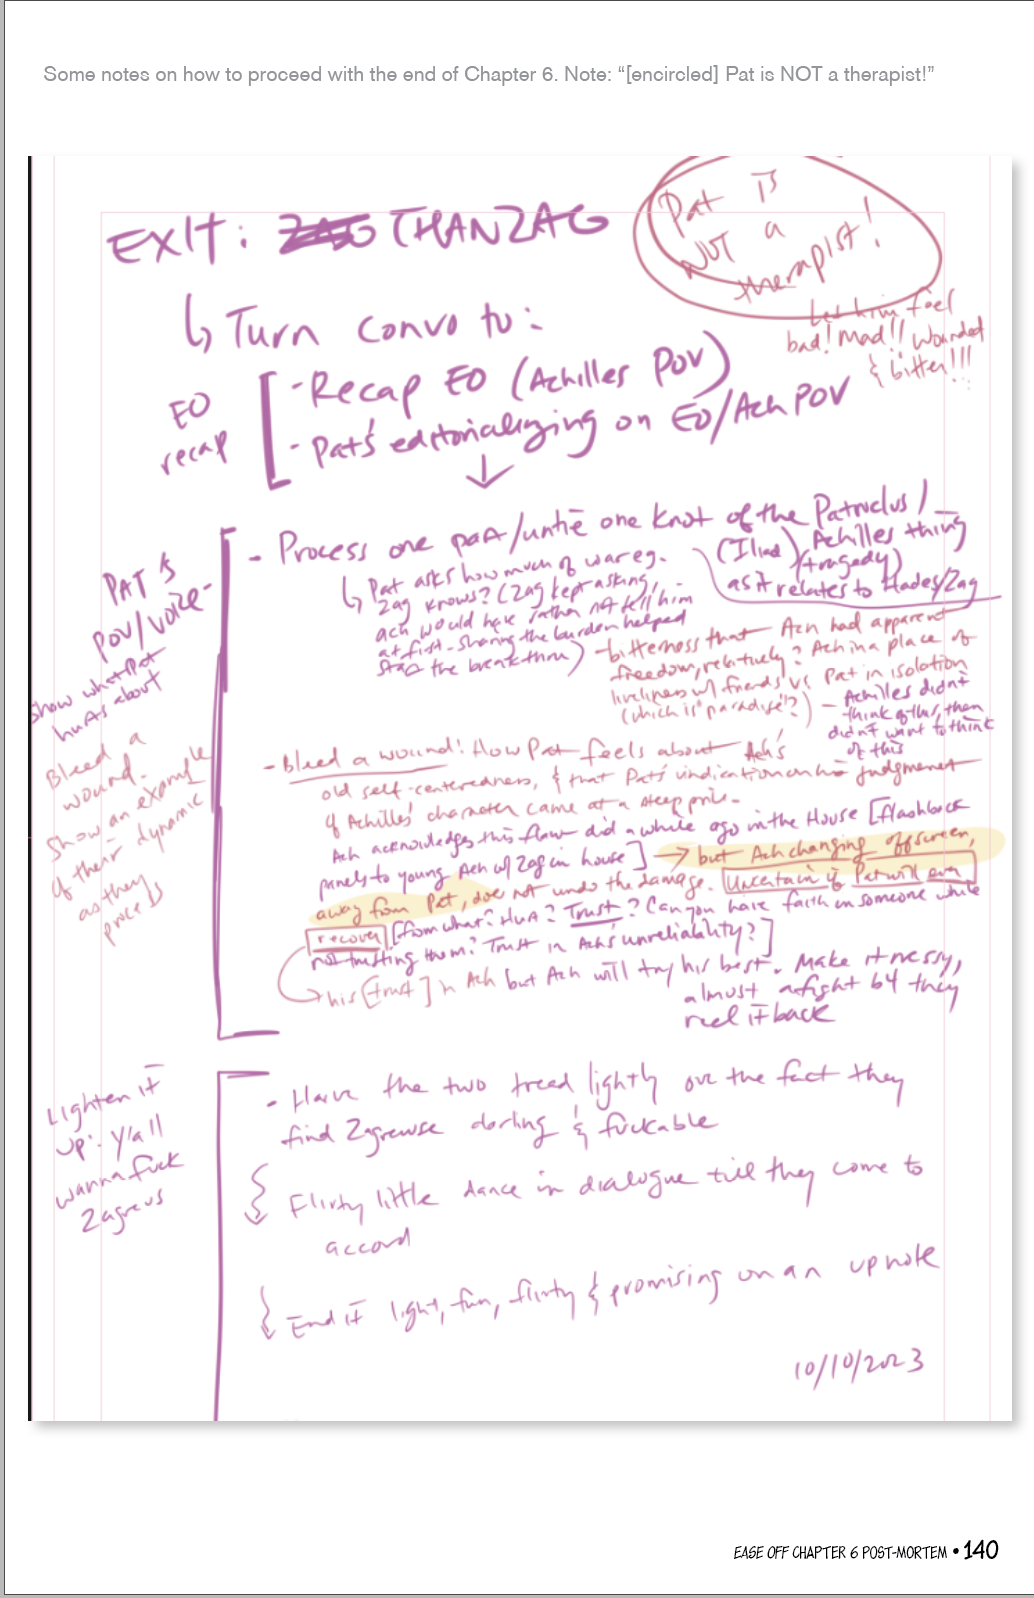 Some notes on how to proceed with the end of Chapter 6. Note: “[encircled] Pat is NOT a therapist!”
EXIT: ZAG THANZAG
Pat is
NOT a
therapist!
Let him feel
bad! Mad!! Wounded
& bitter!!!
↳ Turn convo to:
EO
recap
- Recap EO (Achilles POV)
- Pat's editorializing on EO/Ach POV
↓
PAT's
POV/voice-
Show what Pat
hurts about
Bleed a
wound.
Show an example
of their dynamic
as they
proceed
- Process one part/untie one knot of the Patroclus/
Achilles thing
(Iliad) (tragedy)
as it relates to Hades/Zag
↳ Pat asks how much of war e.g.
Zag knows? (Zag kept asking,
Ach would have rather not tell him
at first - Sharing the burden helped
start the breakthru)
- bitterness that Ach had apparent
freedom, relatively? Ach in a place of
liveliness w/ friends vs Pat in isolation
(which is "paradise"?)
- Achilles didn't
think of this, then
didn't want to think
of this
- Bleed a wound: How Pat feels about Ach's
old self-centeredness, & that Pat's vindication on his judgment
of Achilles' character came at a steep price.
Ach acknowledges this flaw did a while ago in the House [flashback
panels to young Ach w/ Zag in house] → but Ach changing offscreen,
away from Pat, does not undo the damage. Uncertain if Pat will ever
recover [from what? Hurt? Trust? Can you have faith in someone while
not trusting them? Trust in Ach's unreliability?]
his [trust] in Ach but Ach will try his best. Make it messy,
almost a fight b4 they
reel it back
Lighten it
up: Y'all
wanna fuck
Zagreus
- Have the two tread lightly over the fact they
find Zagreus darling & fuckable
Flirty little dance in dialogue till they come to
accord
End it light, fun, flirty & promising on an up note
10/10/2023
EASE OFF CHAPTER 6 POST-MORTEM • 140